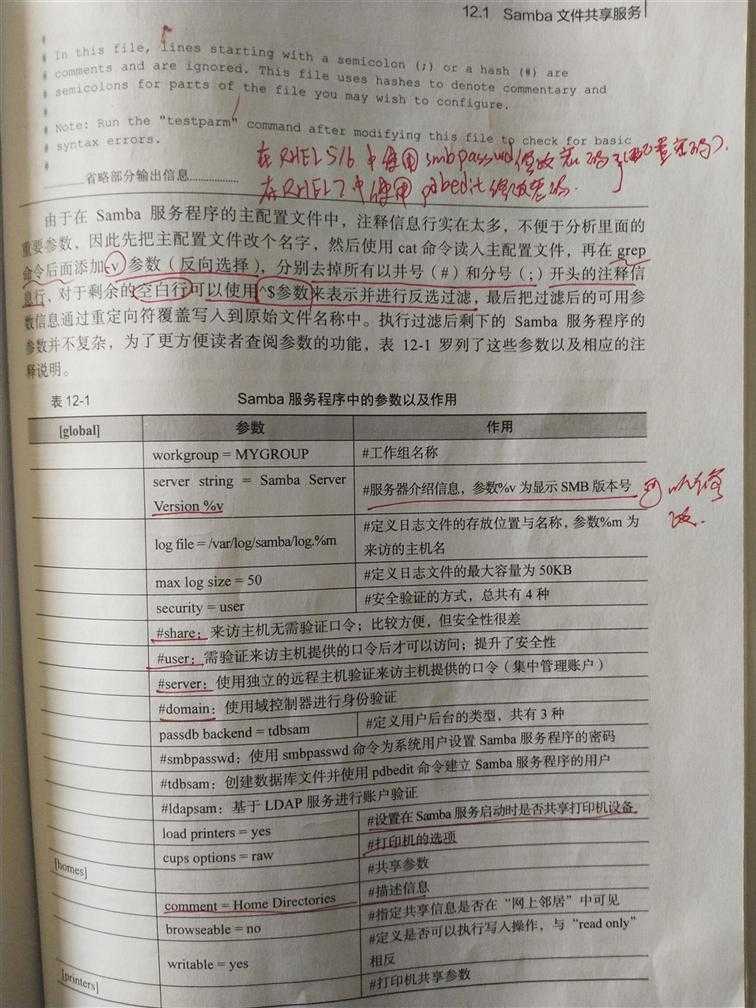 12.1 Samba 文件共享服务
#
# In this file, lines starting with a semicolon (;) or a hash (#) are
# comments and are ignored. This file uses hashes to denote commentary and
# semicolons for parts of the file you may wish to configure.
#
# Note: Run the "testparm" command after modifying this file to check for basic
# syntax errors.
在RHEL5/6中使用smbpasswd修改密码
在RHEL7中使用pdbedit修改密码.
………省略部分输出信息………
由于在 Samba 服务程序的主配置文件中，注释信息行实在太多，不便于分析里面的
重要参数，因此先把主配置文件改个名字，然后使用 cat 命令读入主配置文件，再在 grep
命令后面添加-v 参数（反向选择），分别去掉所有以井号（#）和分号（;）开头的注释信
息行，对于剩余的空白行可以使用^$参数来表示并进行反选过滤，最后把过滤后的可用参
数信息通过重定向符覆盖写入到原始文件名称中。执行过滤后剩下的 Samba 服务程序的
参数并不复杂，为了更方便读者查阅参数的功能，表 12-1 罗列了这些参数以及相应的注
释说明。
表 12-1 Samba 服务程序中的参数以及作用
[global] 参数 作用
workgroup = MYGROUP #工作组名称
server string = Samba Server
Version %v #服务器介绍信息，参数%v 为显示 SMB 版本号
可以修
改.
log file = /var/log/samba/log.%m #定义日志文件的存放位置与名称，参数%m 为
来访的主机名
max log size = 50 #定义日志文件的最大容量为 50KB
security = user #安全验证的方式，总共有 4 种
#share：来访主机无需验证口令；比较方便，但安全性很差
#user：需验证来访主机提供的口令后才可以访问；提升了安全性
#server：使用独立的远程主机验证来访主机提供的口令（集中管理账户）
#domain：使用域控制器进行身份验证
passdb backend = tdbsam #定义用户后台的类型，共有 3 种
#smbpasswd：使用 smbpasswd 命令为系统用户设置 Samba 服务程序的密码
#tdbsam：创建数据库文件并使用 pdbedit 命令建立 Samba 服务程序的用户
#ldapsam：基于 LDAP 服务进行账户验证
load printers = yes #设置在 Samba 服务启动时是否共享打印机设备
cups options = raw #打印机的选项
[homes] #共享参数
comment = Home Directories #描述信息
browseable = no #指定共享信息是否在“网上邻居”中可见
writable = yes #定义是否可以执行写入操作，与“read only”
相反
[printers] #打印机共享参数